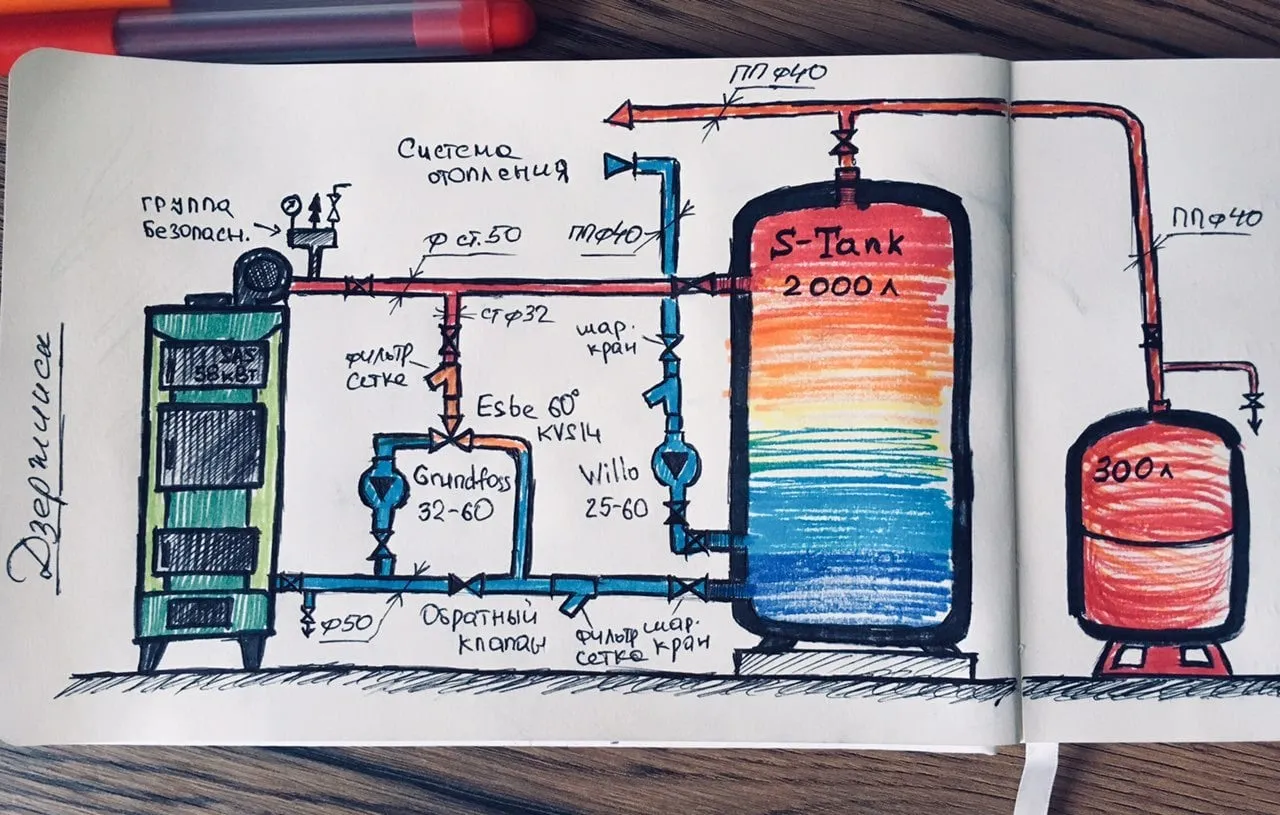 ПП Ф40
Система
отопления
группа
Безопасн.
Ф ст.50
ПП Ф40
ПП Ф40
S-Tank
2000 л
ст Ф32
шар.
кран
фильтр
сетка
SAS
58 кВт
Esbe 60°
KVS14
Grundfoss
32-60
Willo
25-60
300 л
Ф50
Обратный
клапан
фильтр
сетка
шар.
кран